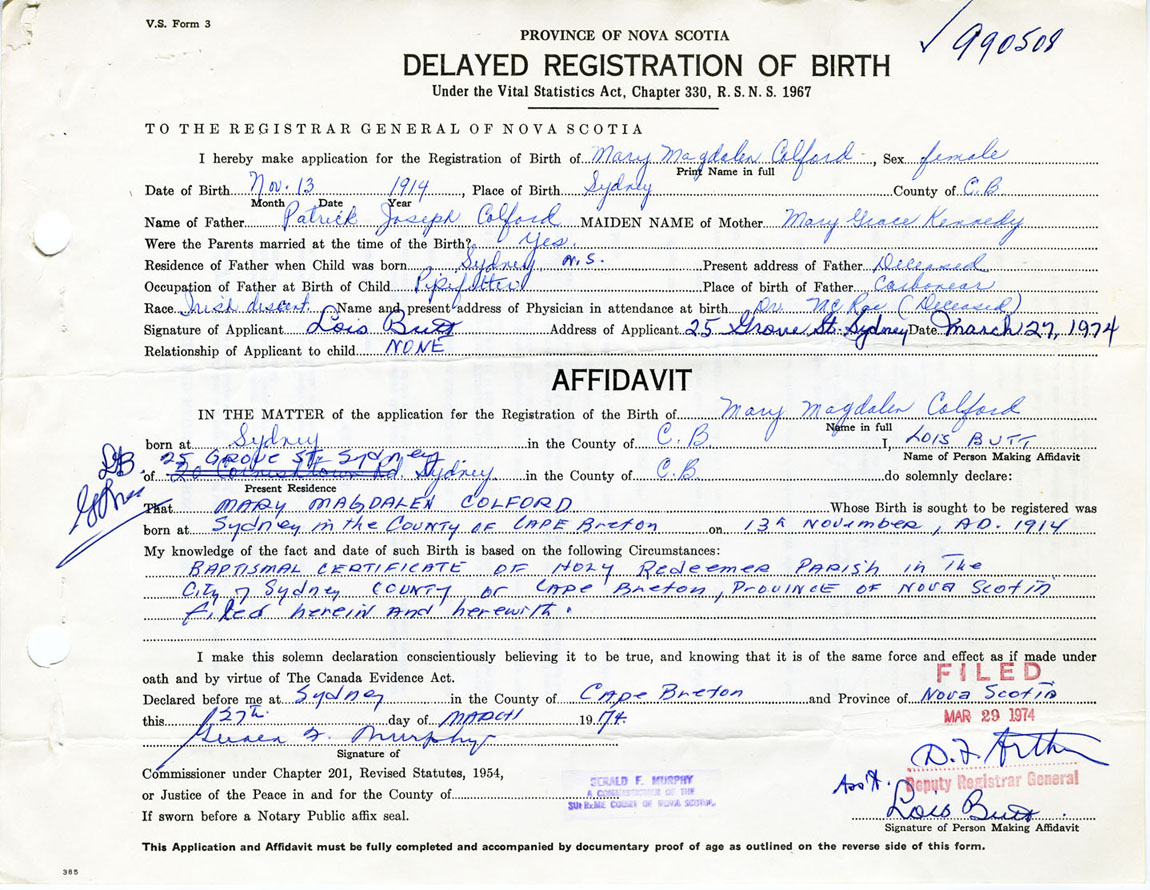 V.S. Form 3
990508
PROVINCE OF NOVA SCOTIA
DELAYED REGISTRATION OF BIRTH
Under the Vital Statistics Act, Chapter 330, R. S. N. S. 1967
TO THE REGISTRAR GENERAL OF NOVA SCOTIA
I hereby make application for the Registration of Birth of Mary Magdalen Colford, Sex female
Print Name in full
Date of Birth Nov. 13 1914, Place of Birth Sydney County of C.B
Month Date Year
Name of Father Patrick Joseph Colford MAIDEN NAME of Mother Mary Grace Kennedy
Were the Parents married at the time of the Birth? Yes.
Residence of Father when Child was born Sydney N.S. Present address of Father Deceased
Occupation of Father at Birth of Child Pipefitter Place of birth of Father Carbonear
Race Irish discent Name and present address of Physician in attendance at birth Dr. McRae (Deceased)
Signature of Applicant Lois Butt Address of Applicant 25 Grove St. Sydney Date March 27, 1974
Relationship of Applicant to child NONE
AFFIDAVIT
IN THE MATTER of the application for the Registration of the Birth of Mary Magdalen Colford
Name in full
born at Sydney in the County of C.B I, LOIS BUTT
Name of Person Making Affidavit
25 GROVE St. Sydney
LB.
of Rd. Sydney in the County of C.B. do solemnly declare:
Present Residence
That MARY MAGDALEN COLFORD Whose Birth is sought to be registered was
born at Sydney in the COUNTY OF CAPE BRETON on 13th NOVEMBER, AD. 1914
My knowledge of the fact and date of such Birth is based on the following Circumstances:
BAPTISMAL CERTIFICATE OF HOLY REDEEMER PARISH in The
City of Sydney COUNTY OF CAPE BRETON, PROVINCE OF NOVA SCOTIA
filed herein and herewith.
I make this solemn declaration conscientiously believing it to be true, and knowing that it is of the same force and effect as if made under
oath and by virtue of The Canada Evidence Act.
FILED
Declared before me at Sydney in the County of CAPE BRETON and Province of NOVA SCOTIA
this 27th day of MARCH 1974.
MAR 29 1974
Signature of
Commissioner under Chapter 201, Revised Statutes, 1954,
or Justice of the Peace in and for the County of
If sworn before a Notary Public affix seal.
GERALD F. MURPHY
A COMMISSIONER OF THE
SUPREME COURT OF NOVA SCOTIA
D.F. Arthur
Ass't. Deputy Registrar General
Lois Butt
Signature of Person Making Affidavit
This Application and Affidavit must be fully completed and accompanied by documentary proof of age as outlined on the reverse side of this form.
385